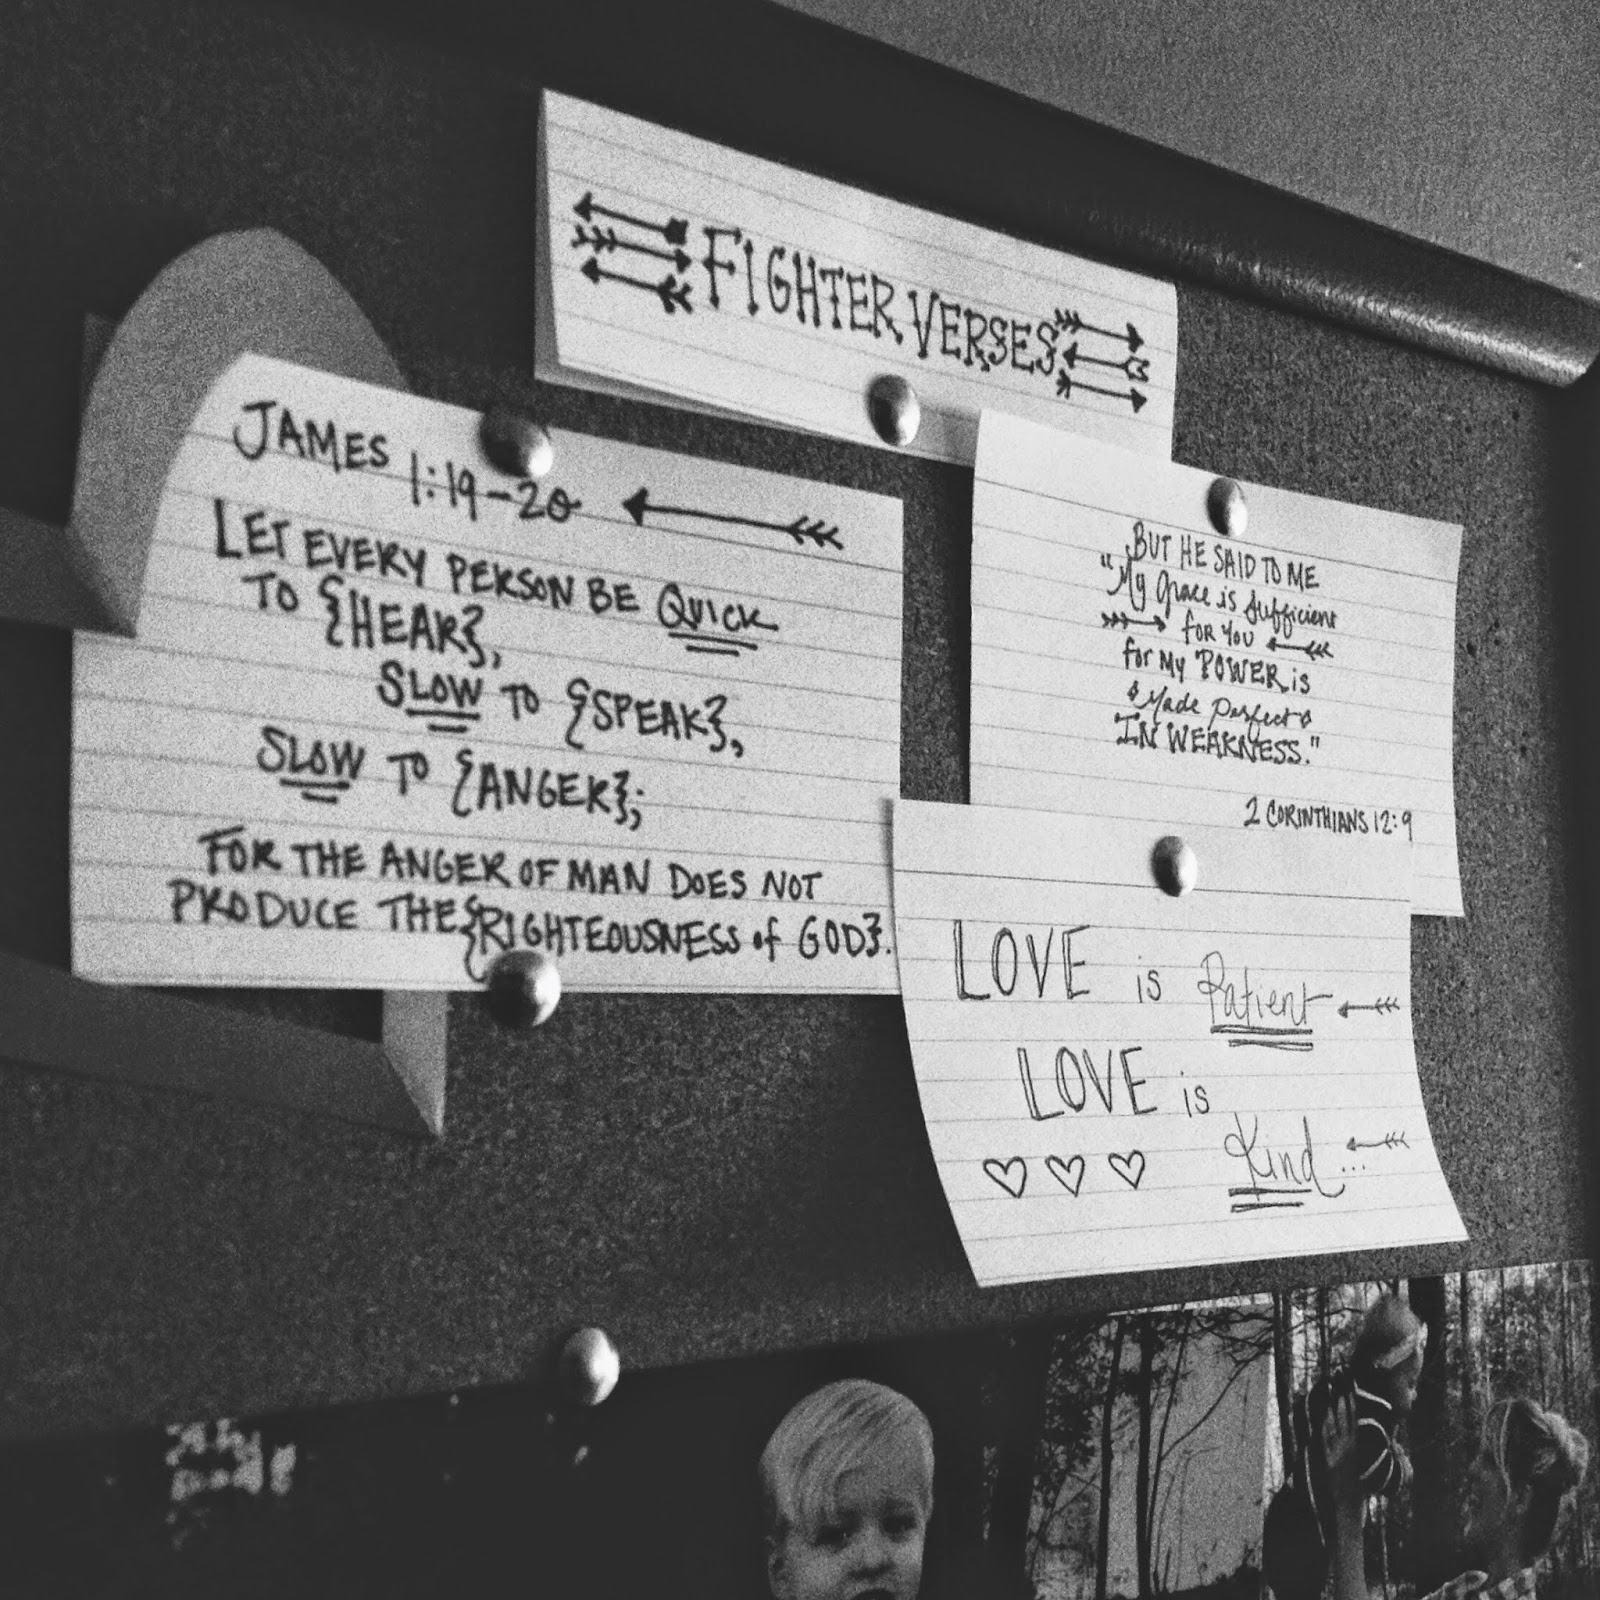 FIGHTER VERSES
JAMES 1:19-20
LET EVERY PERSON BE QUICK
TO {HEAR},
SLOW TO {SPEAK},
SLOW TO {ANGER};
FOR THE ANGER OF MAN DOES NOT
PRODUCE THE {RIGHTEOUSNESS of GOD}.
BUT HE SAID TO ME
"My Grace is Sufficient
for YOU
for MY POWER is
Made Perfect
IN WEAKNESS."
2 CORINTHIANS 12:9
LOVE is Patient
LOVE is
Kind...